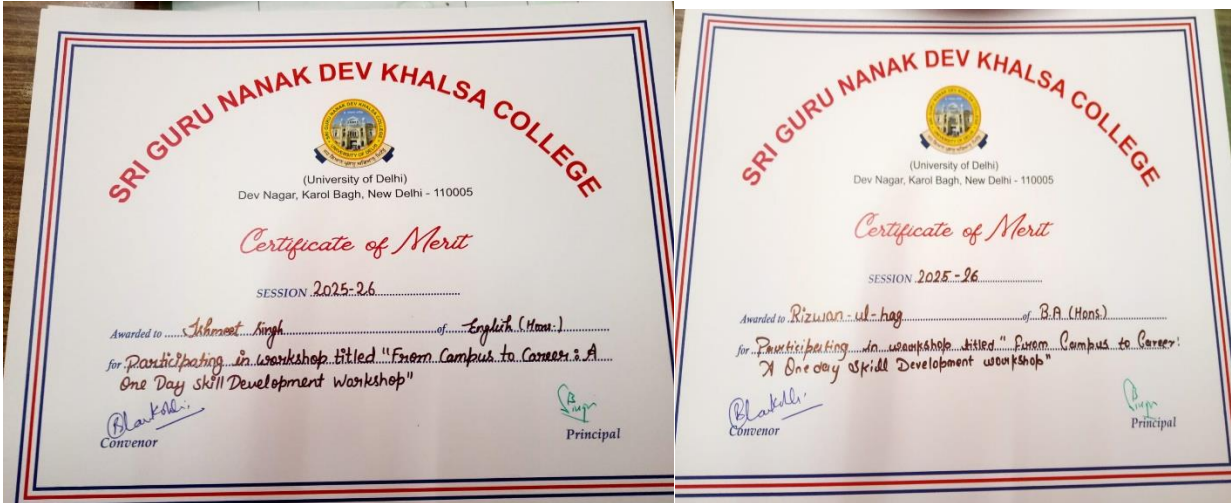 SRI GURU NANAK DEV KHALSA COLLEGE
(University of Delhi)
Dev Nagar, Karol Bagh, New Delhi - 110005
Certificate of Merit
SESSION 2025-26
Awarded to Ikhmeet Singh of English (Hons.)
for Participating in workshop titled "From Campus to Career: A
One Day skill Development Workshop"
Convenor
Principal
SRI GURU NANAK DEV KHALSA COLLEGE
(University of Delhi)
Dev Nagar, Karol Bagh, New Delhi - 110005
Certificate of Merit
SESSION 2025-26
Awarded to Rizwan-ul-haq of B.A (Hons.)
for Participating in workshop titled "From Campus to Career:
A One day Skill Development workshop"
Convenor
Principal